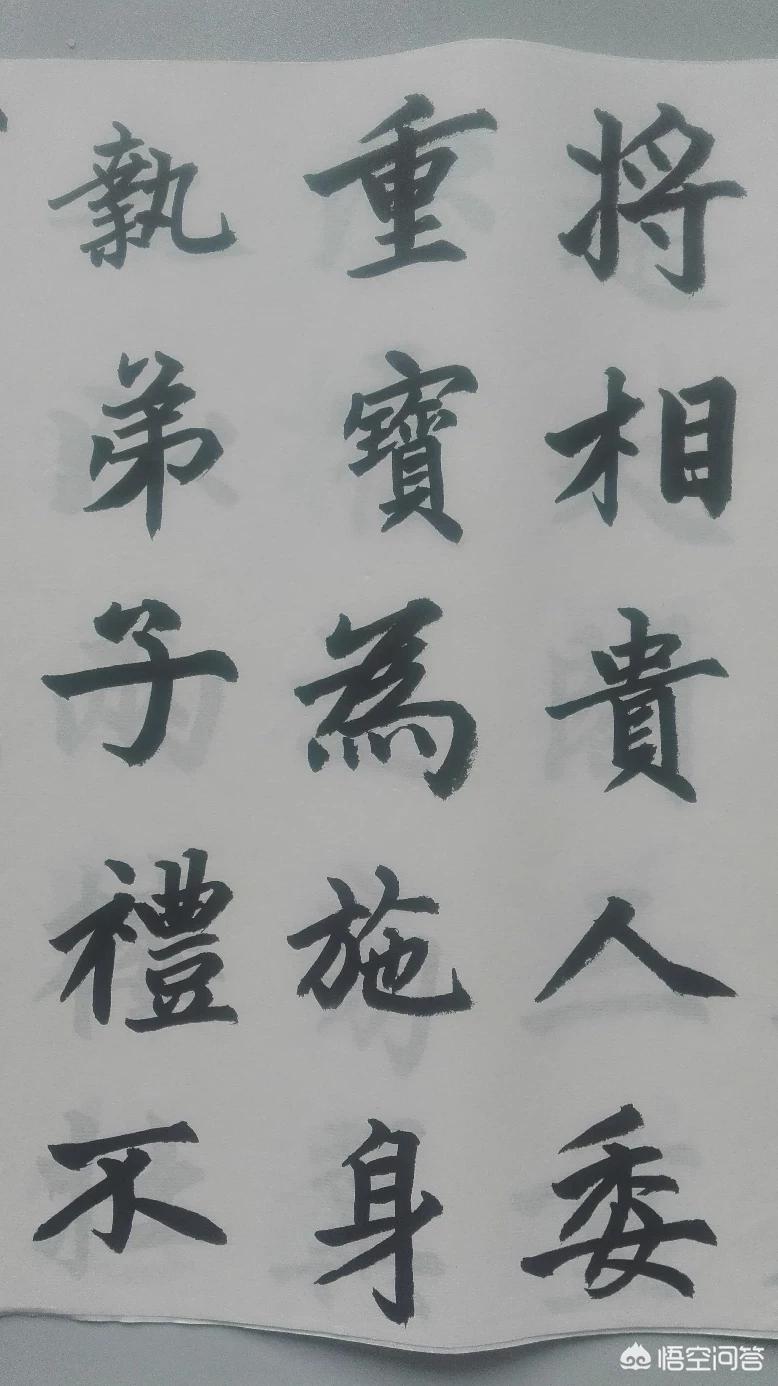 將相貴人委
重寶為施身
執弟子禮不
悟空问答